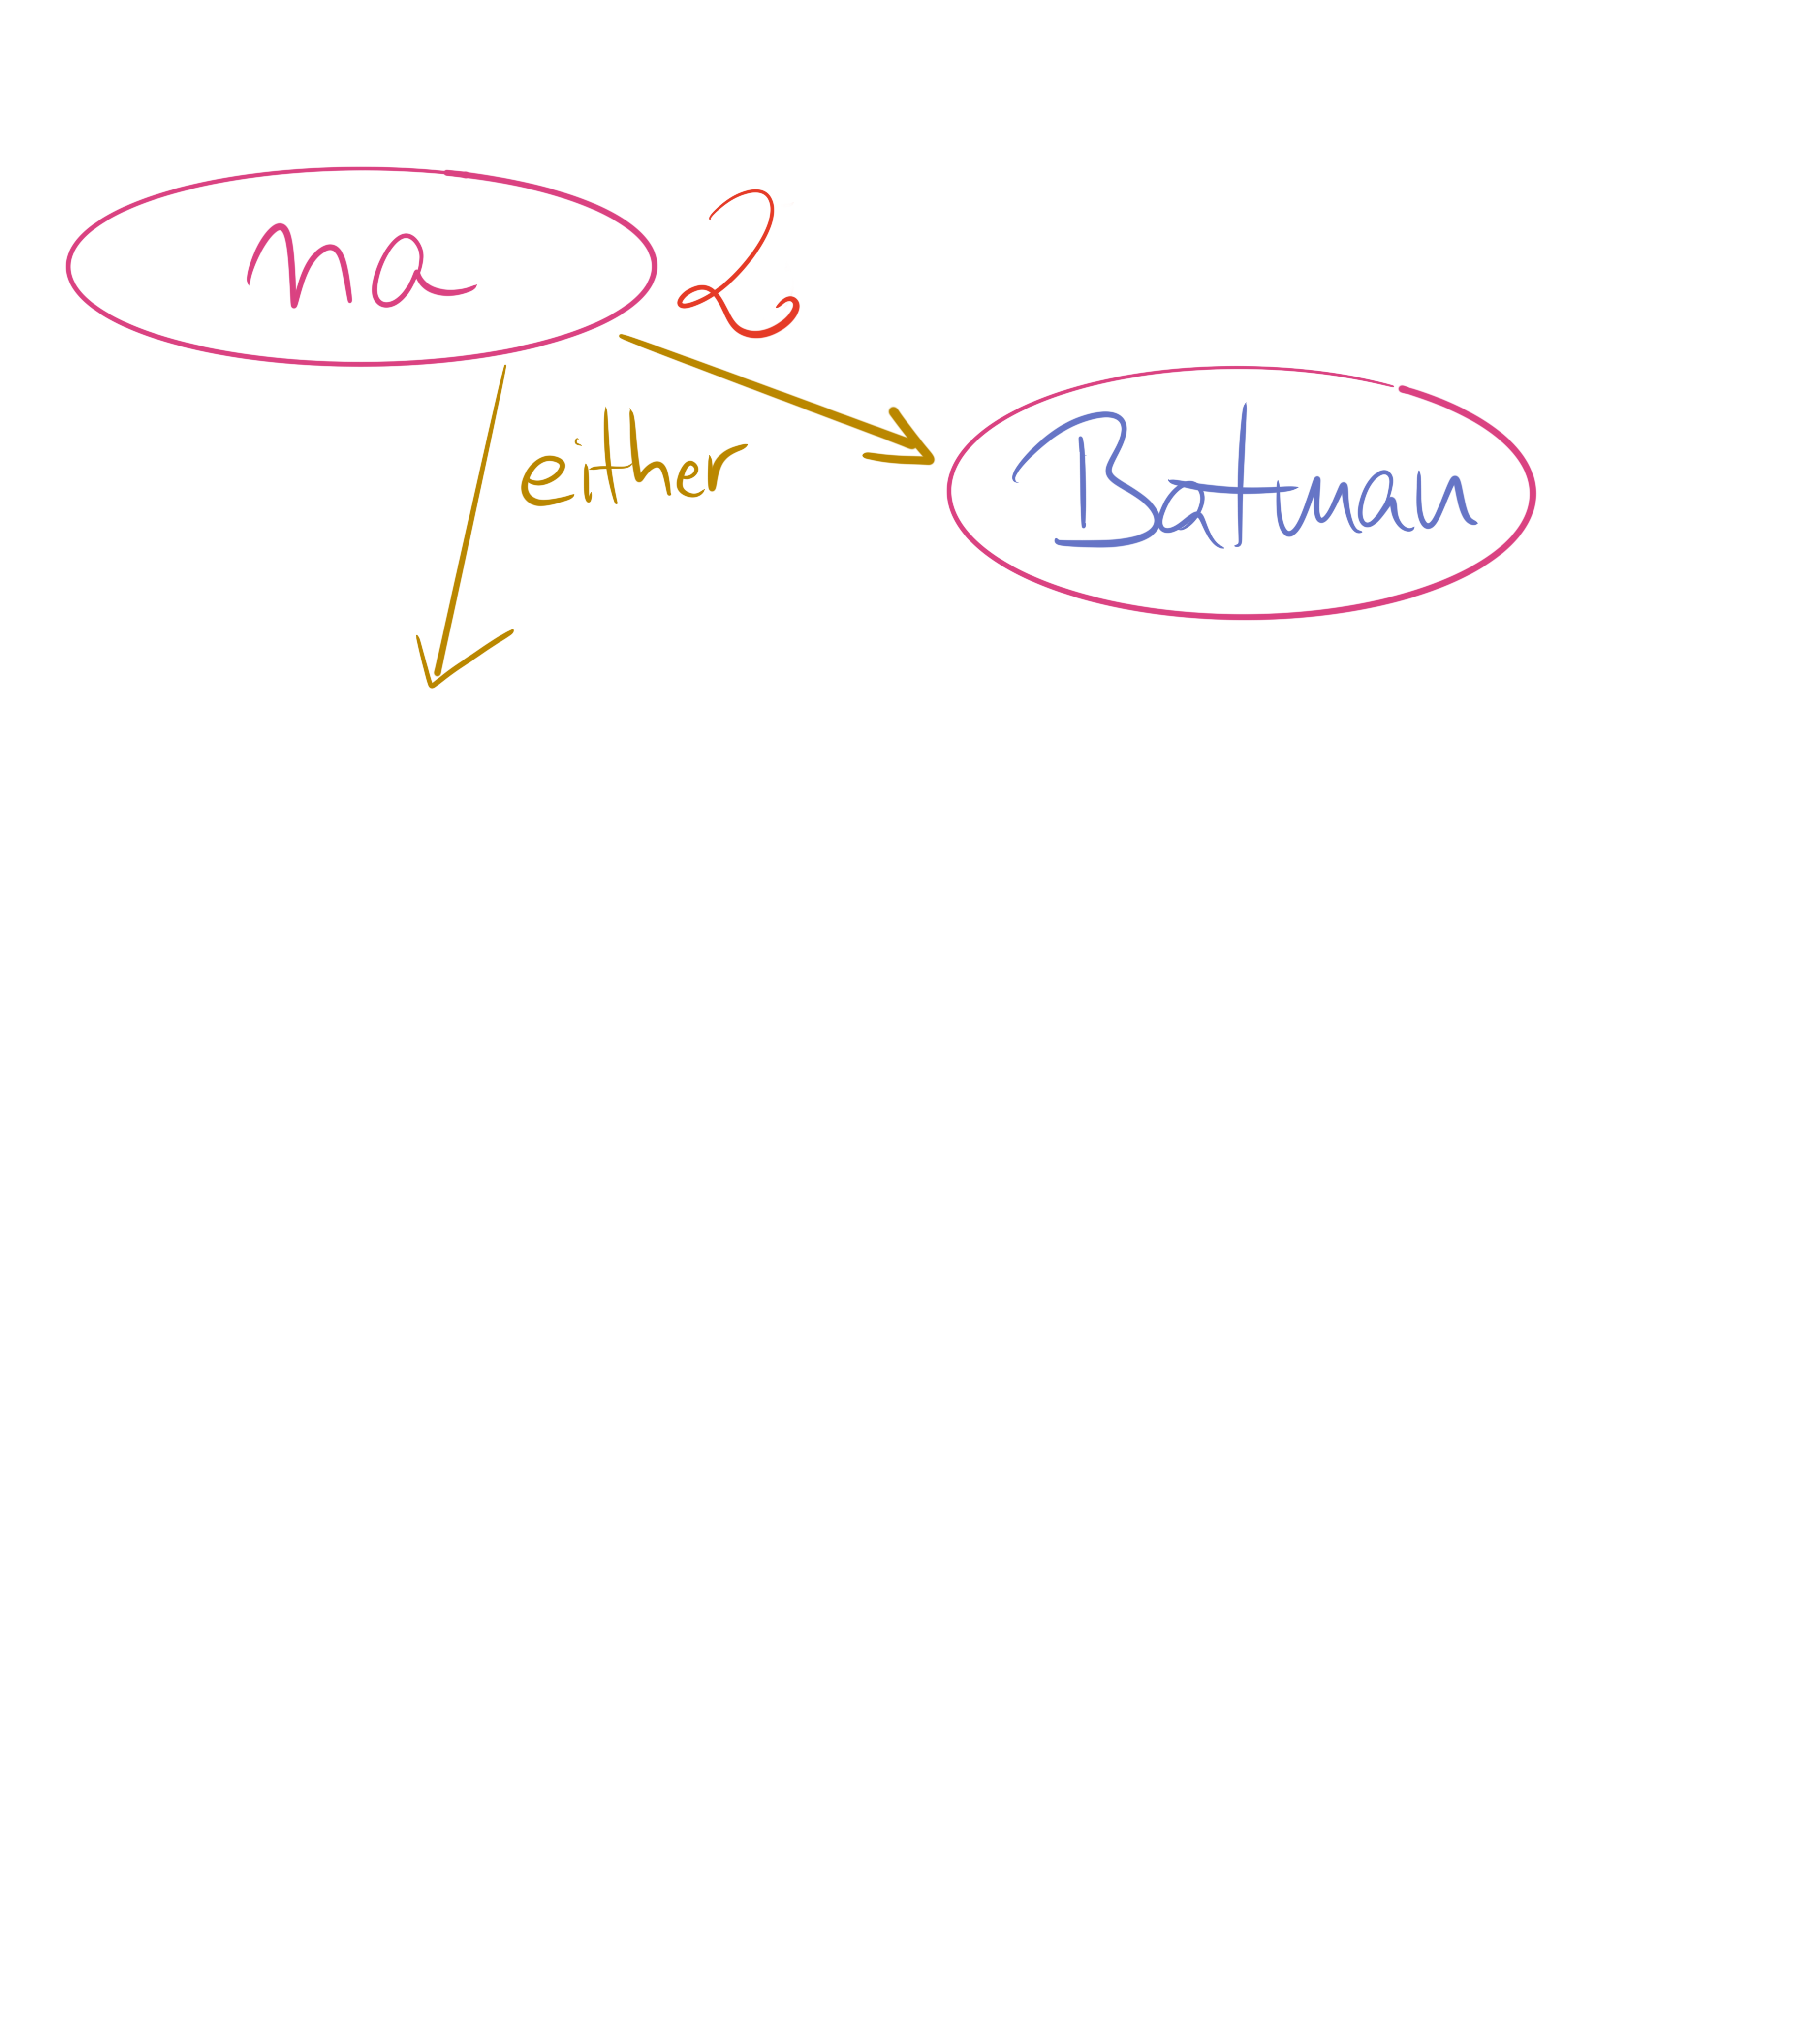 ma
2
either
Batman